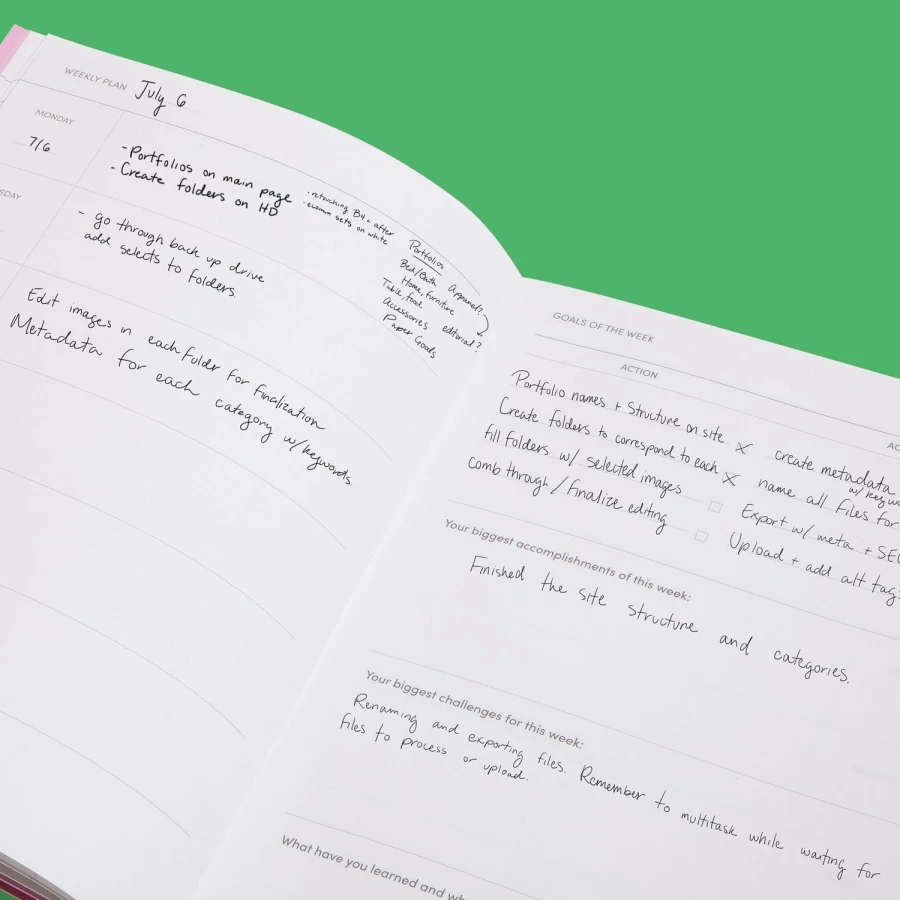 WEEKLY PLAN July 6
MONDAY
7/6
- Portfolios on main page
- Create folders on HD
· retouching B4 + after
· ecomm sets on white
SDAY
- go through back up drive
add selects to folders.
Portfolios
Bed/Bath Apparel?
Home, furniture
Table, food
Accessories editorial?
Paper Goods
Edit images in each folder for finalization
Metadata for each category w/ keywords.
GOALS OF THE WEEK
ACTION
AC
Portfolio names + Structure on site X
Create folders to correspond to each X
fill folders w/ selected images
comb through / finalize editing
create metadata
w/ keywo
name all files for
Export w/ meta + SEO
Upload + add alt tags
Your biggest accomplishments of this week:
Finished the site structure and categories.
Your biggest challenges for this week:
Renaming and exporting files. Remember to multitask while waiting for
files to process or upload.
What have you learned and wh